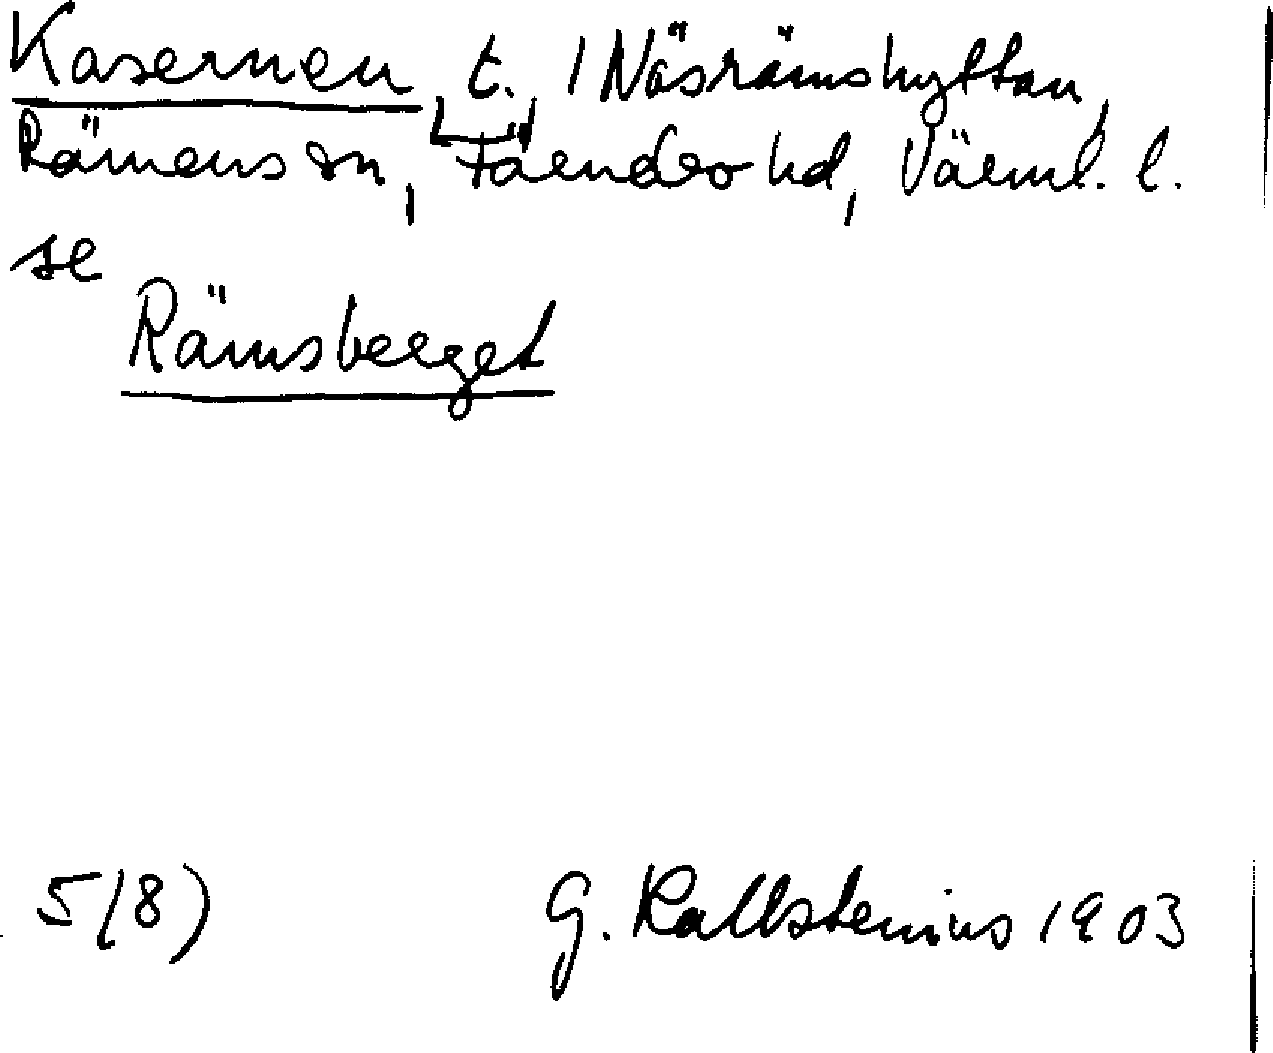 Kasernen, t. / Näsrämshyttan,
Rämens sn, Färnebo hd, Värml. l.
se
Rämsberget
5(8)
G. Kallstenius 1903